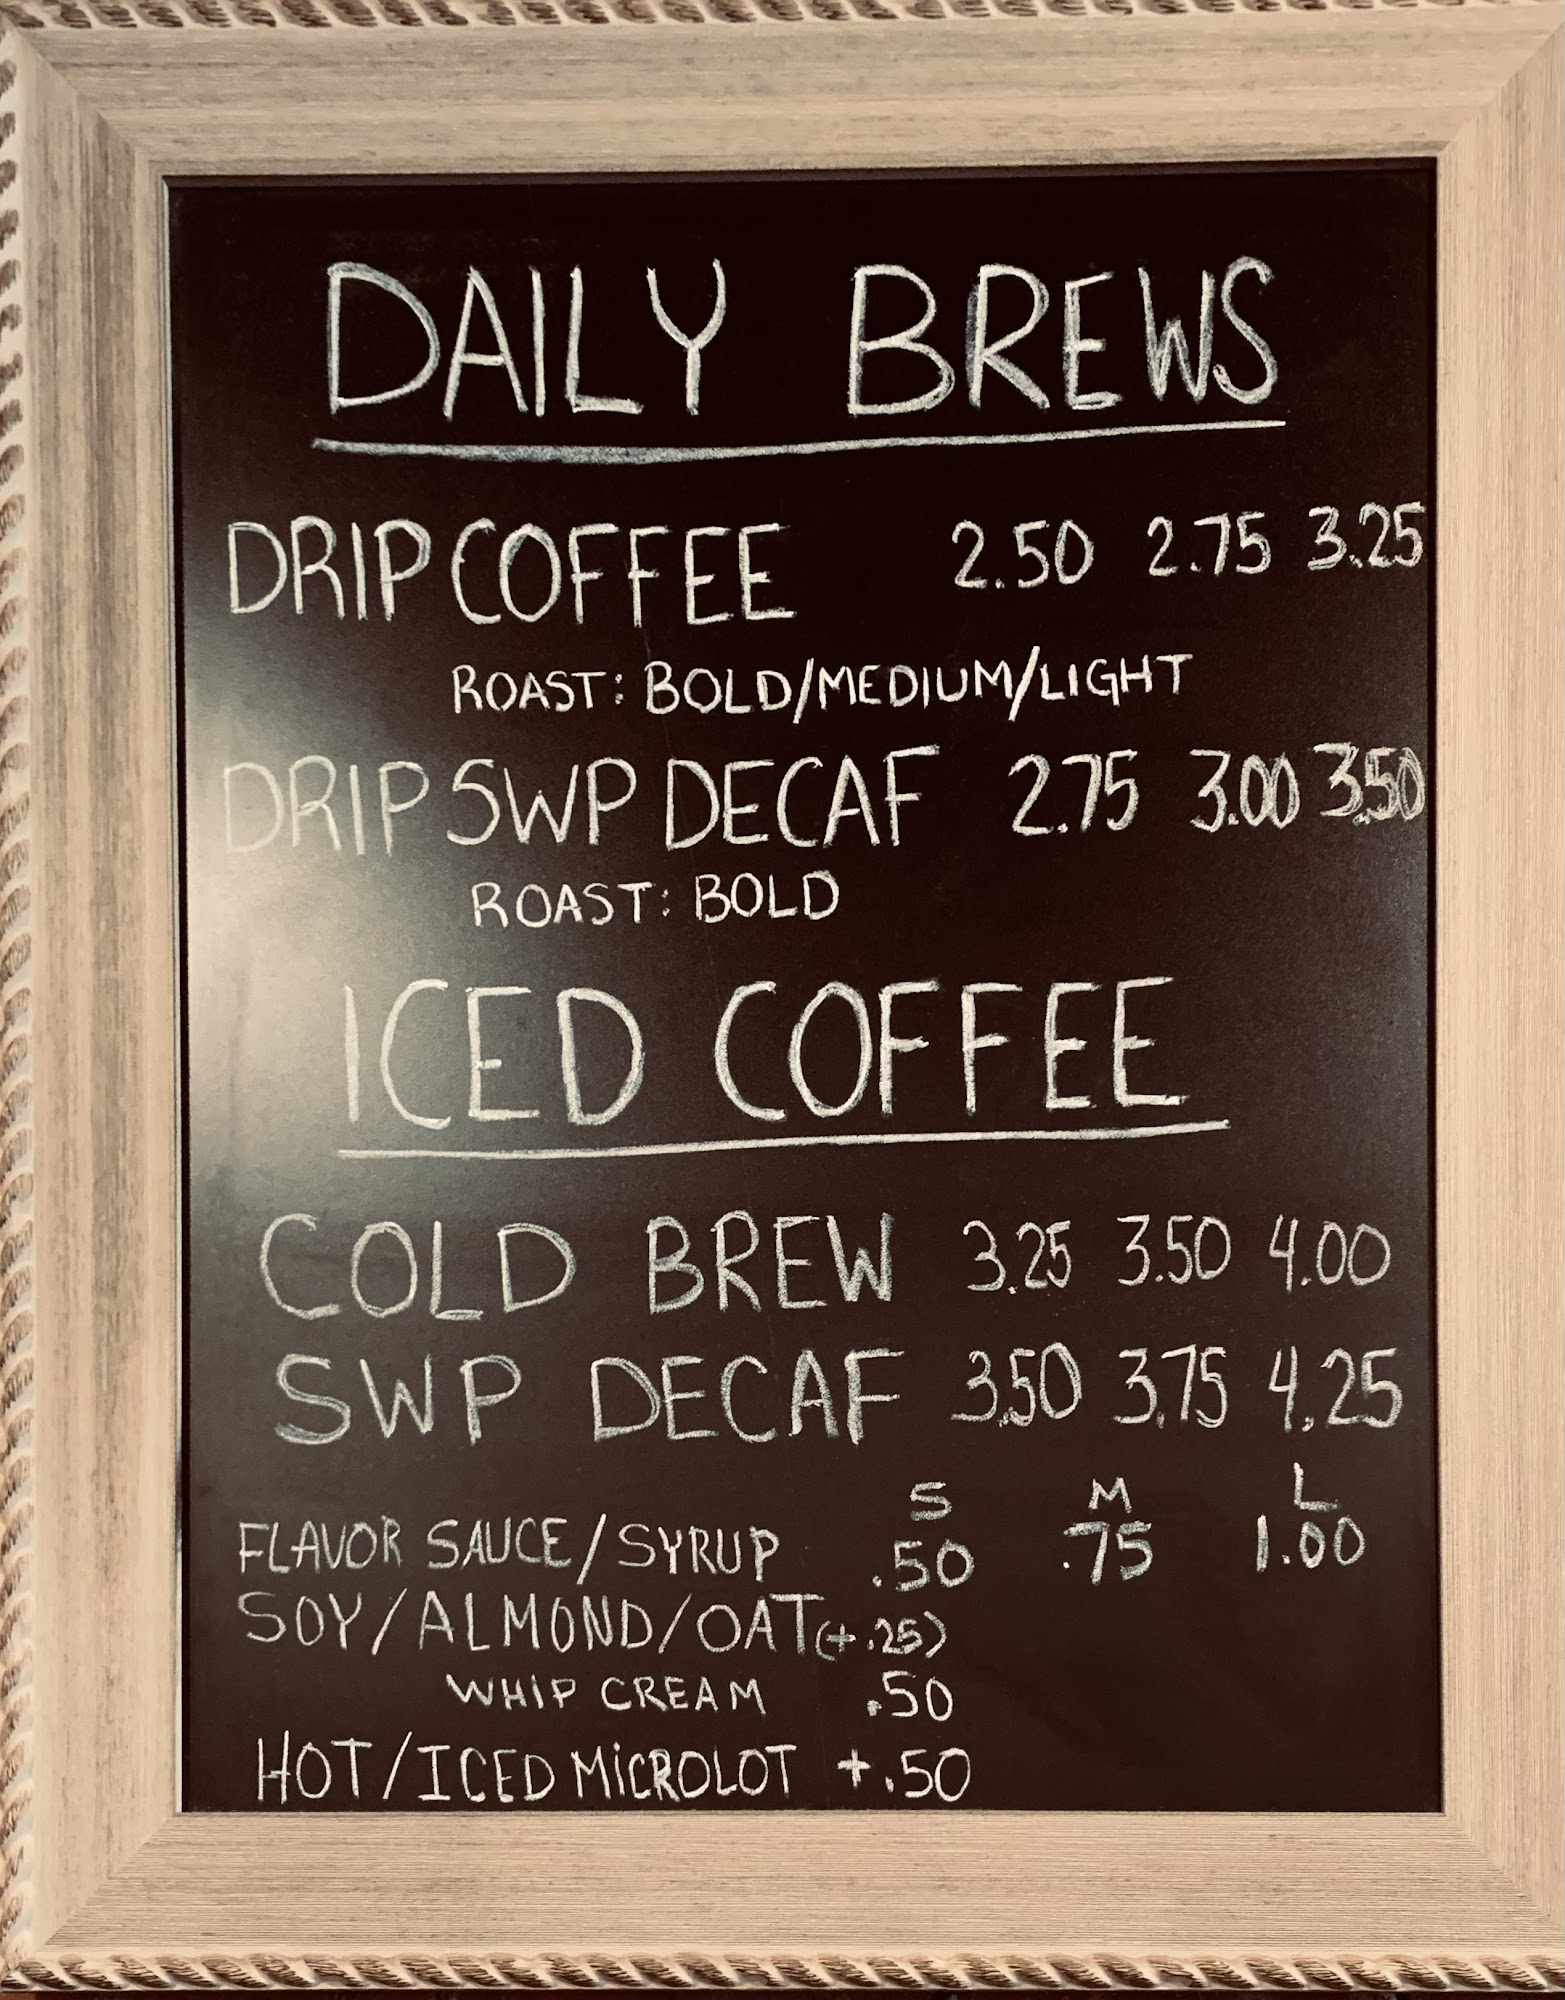 DAILY BREWS
DRIP COFFEE 2.50 2.75 3.25
ROAST: BOLD/MEDIUM/LIGHT
DRIP SWP DECAF 2.75 3.00 3.50
ROAST: BOLD
ICED COFFEE
COLD BREW 3.25 3.50 4.00
SWP DECAF 3.50 3.75 4.25
S M L
FLAVOR SAUCE/SYRUP .50 .75 1.00
SOY/ALMOND/OAT (+.25)
WHIP CREAM .50
HOT/ICED MICROLOT +.50